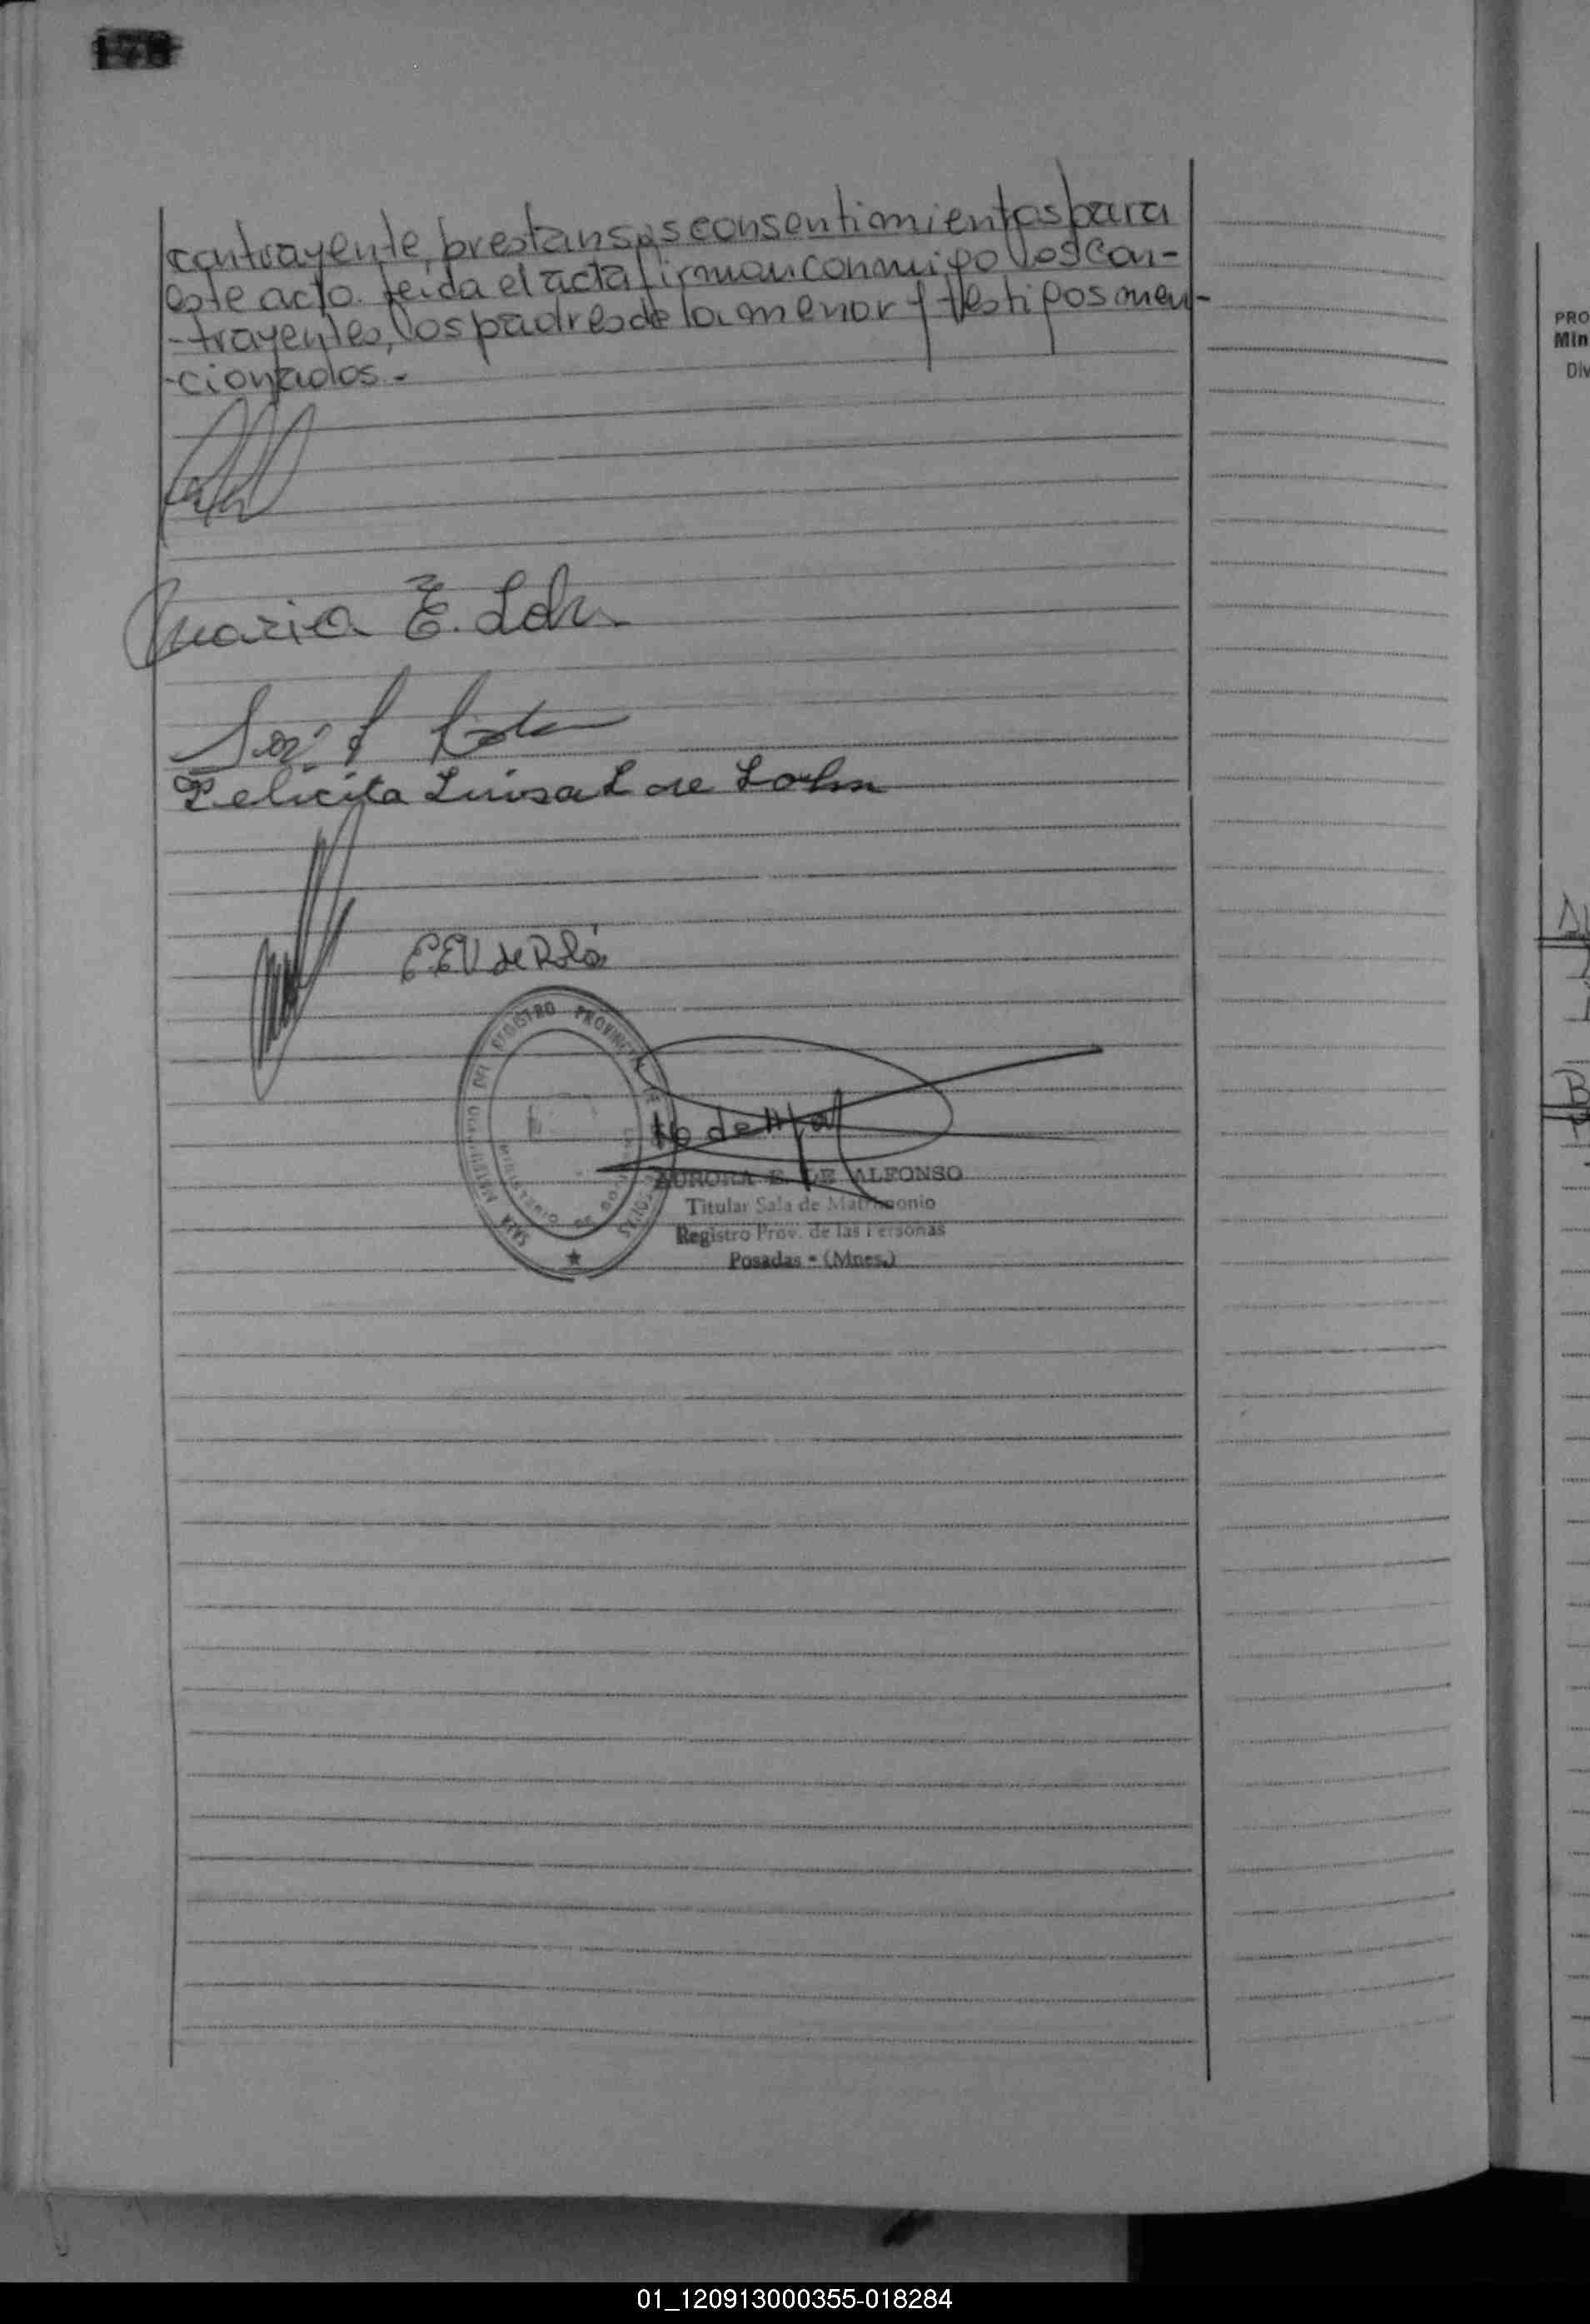 178
contrayente, prestan sus consentimientos para
este acto. Leida el acta firman conmigo los con-
-trayentes, los padres de la menor y testigos men-
-cionados.-
Maria E. Lohn
Felicita Luisa L de Lohn
E.E.V de Poló
REGISTRO PROVINCIAL DE LAS
MINISTERIO DE GOBIERNO
SALA MATRIMONIO DEL
AURORA E. DE ALFONSO
Titular Sala de Matrimonio
Registro Prov. de las Personas
Posadas - (Mnes.)
PRO
Min
Div
B
01_120913000355-018284